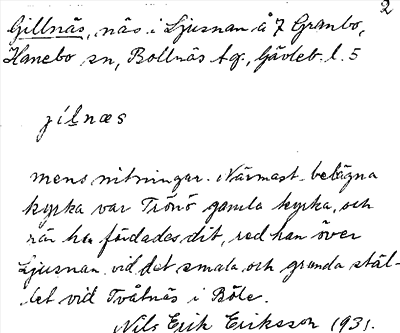 2
Gillnäs, näs i Ljusnan å 7 Granbo,
Hanebo sn, Bollnäs tg, Gävleb. l. 5
jílnæs
mens nitningar. Närmast belägna
kyrka var Trönö gamla kyrka, och
när han fördades dit, red han över
Ljusnan vid det smala och grunda stäl-
let vid Tvålnäs i Böle.
Nils Erik Eriksson 1931.